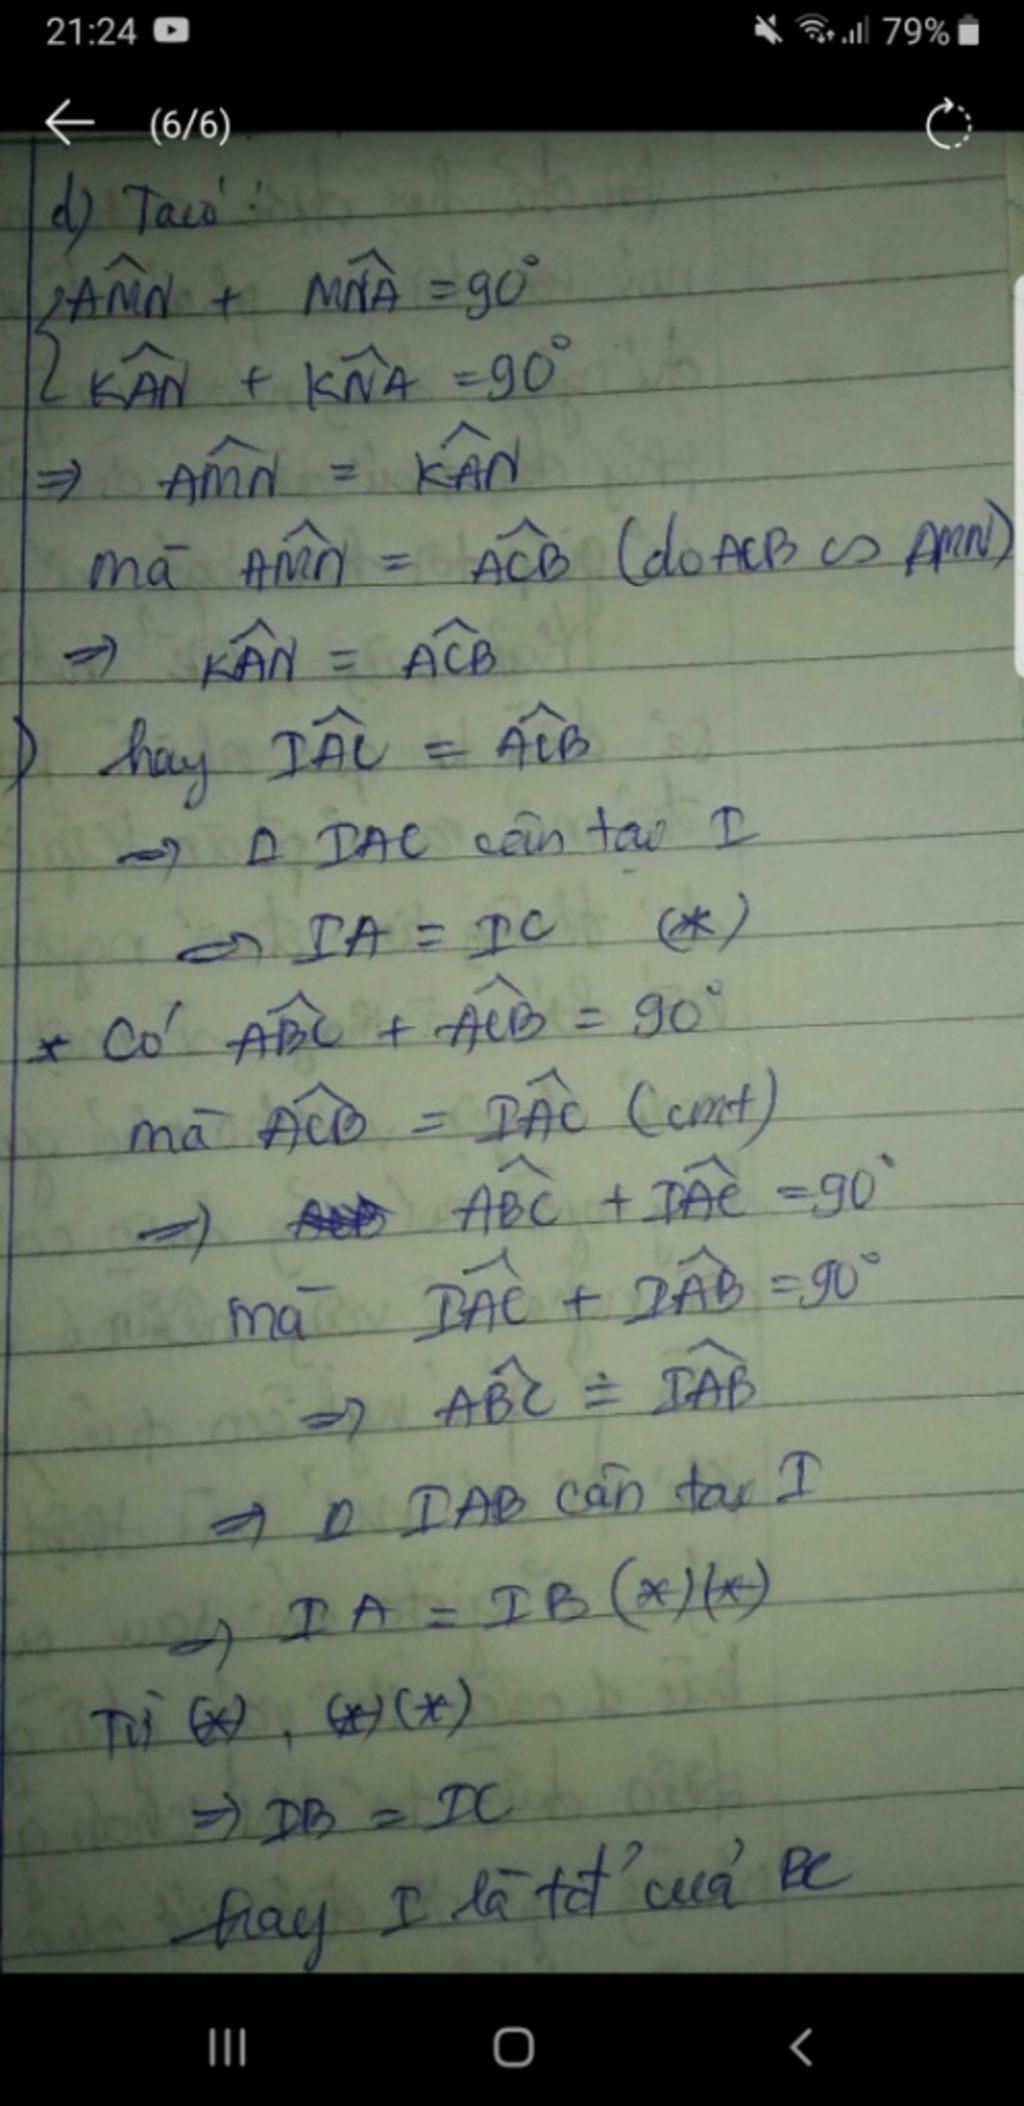 21:24 79%
(6/6)
d) Ta có:
AMN + MNA = 90°
KAN + KNA = 90°
=> AMN = KAN
mà AMN = ACB (do ACB ∽ AMN)
=> KAN = ACB
hay IAC = ACB
=> Δ IAC cân tại I
=> IA = IC (*)
* Có ABC + ACB = 90°
mà ACB = IAC (cmt)
=> ABC + IAC = 90°
mà IAC + IAB = 90°
=> ABC = IAB
=> Δ IAB cân tại I
=> IA = IB (*)(*)
Từ (*), (*)(*)
=> IB = IC
hay I là tđ' của BC